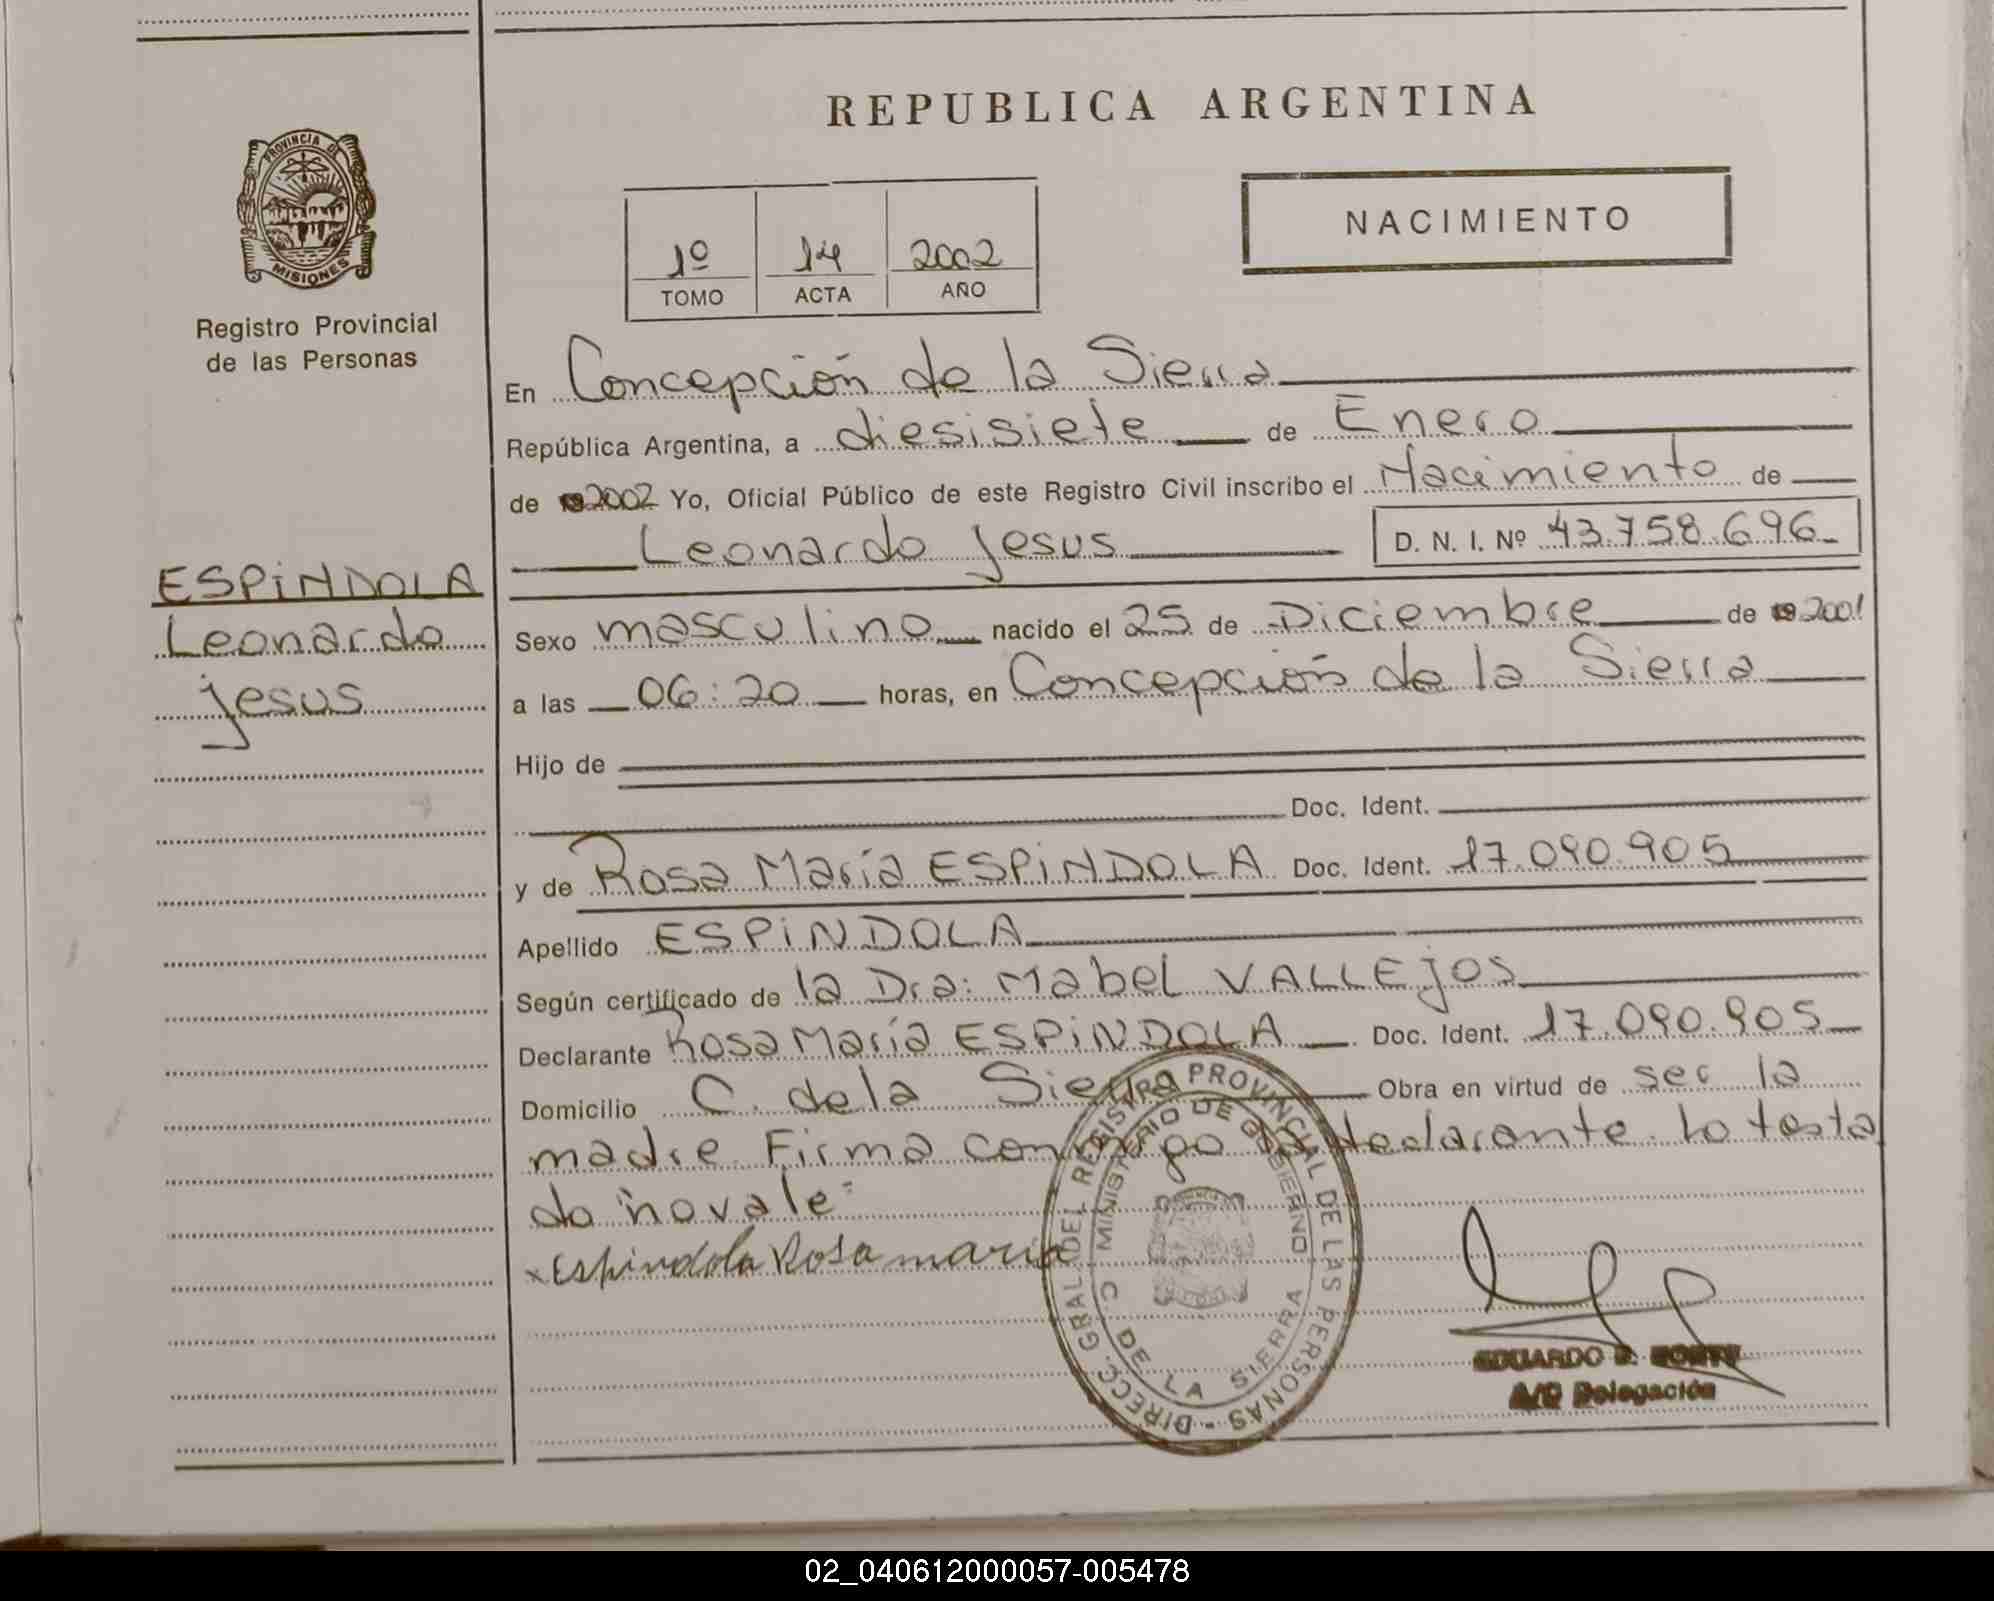 REPUBLICA ARGENTINA
PROVINCIA DE
MISIONES
Registro Provincial
de las Personas
1º 14 2002
TOMO ACTA AÑO
NACIMIENTO
En Concepción de la Sierra
República Argentina, a diesisiete de Enero
de 2002 Yo, Oficial Público de este Registro Civil inscribo el Nacimiento de
Leonardo Jesus D. N. I. Nº 43.758.696
ESPINDOLA
Leonardo
Jesus
Sexo masculino nacido el 25 de Diciembre de 2001
a las 06:20 horas, en Concepción de la Sierra
Hijo de
Doc. Ident.
y de Rosa María ESPINDOLA Doc. Ident. 17.090.905
Apellido ESPINDOLA
Según certificado de la Dra: Mabel VALLEJOS
Declarante Rosa María ESPINDOLA Doc. Ident. 17.090.905
Domicilio C. de la Sierra Obra en virtud de ser la
madre Firma conmigo declarante. lo testa
do "no vale"
x Espindola Rosa maria
DIRECC. GRAL. DEL REGISTRO PROVINCIAL DE LAS PERSONAS -
MINISTERIO DE GOBIERNO
C. DE LA SIERRA
EDUARDO
A/C Delegación
02_040612000057-005478